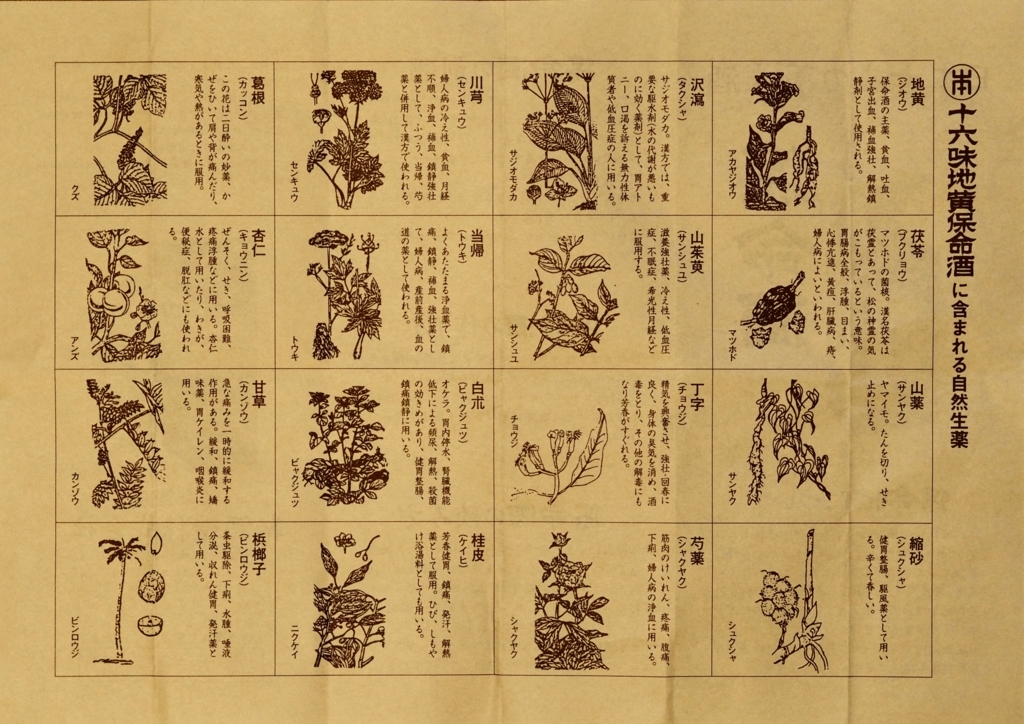 十六味地黄保命酒に含まれる自然生薬
地黄
(ジオウ)
保命酒の主薬、貧血、吐血、
子宮出血、補血強壮、解熱鎮
静剤として使用される。
アカヤジオウ
茯苓
(ブクリョウ)
マツホドの菌核。漢名茯苓は
茯霊とあって、松の神霊の気
がこもっているという意味。
胃腸病全般、浮腫、目まい、
心悸亢進、黄疸、肝臓病、痔、
婦人病によいといわれる。
マツホド
山薬
(サンヤク)
ヤマイモ。たんを切り、せき
止めになる。
サンヤク
縮砂
(シュクシャ)
健胃整腸、駆風薬として用い
る。辛くて香しい。
シュクシャ
沢瀉
(タクシャ)
サジオモダカ。漢方では、重
要な駆水剤(水の代謝が悪いも
のに効く薬剤)として、胃アト
ニー、口渇を訴える無力性体
質者や低血圧症の人に用いる。
サジオモダカ
山茱萸
(サンシュユ)
滋養強壮薬、冷え性、低血圧
症、不眠症、希光性月経など
に服用する。
サンシュユ
丁字
(チョウジ)
精気を興奮させ、強壮・回春に
良く、身体の臭気を消め、酒
毒をとり、その他の解毒にも
なり芳香がすぐれる。
チョウジ
芍薬
(シャクヤク)
筋肉のけいれん、疼痛、腹痛、
下痢、婦人病の浄血に用いる。
シャクヤク
川芎
(センキュウ)
婦人病の冷え性、貧血、月経
不順、浄血、補血、鎮静強壮
薬として、ふつう、当帰、芍
薬と併用して漢方で使われる。
センキュウ
当帰
(トウキ)
よくあたたまる浄血薬で、鎮
痛、鎮静、補血、強壮薬とし
て、婦人病、産前産後、血の
道の薬として使われる。
トウキ
白朮
(ビャクジュツ)
オケラ。胃内停水、腎臓機能
低下による頻尿、解熱、殺菌
の効きめがあり、健胃整腸、
鎮痛鎮静に用いる。
ビャクジュツ
桂皮
(ケイヒ)
芳香健胃、鎮痛、発汗、解熱
薬として服用。ひび、しもや
け浴湯料としても用いる。
ニクケイ
葛根
(カッコン)
この花は二日酔いの妙薬、か
ぜをひいて肩や背が痛んだり、
寒気や熱があるときに服用。
クズ
杏仁
(キョウニン)
ぜんそく、せき、呼吸困難、
疼痛浮腫などに用いる。杏仁
水として用いたり、わきが、
便秘症、脱肛などにも使われ
る。
アンズ
甘草
(カンゾウ)
急な痛みを一時的に緩和する
作用がある。緩和、鎮痛、矯
味薬、胃ケイレン、咽喉炎に
用いる。
カンゾウ
梹榔子
(ビンロウジ)
条虫駆除、下痢、水腫、唾液
分泌、収れん健胃、発汗薬と
して用いる。
ビンロウジ